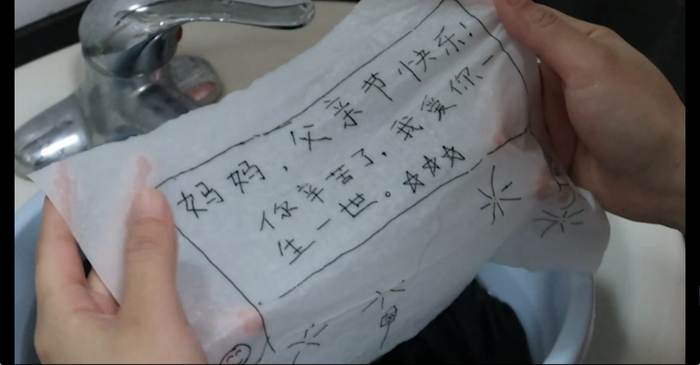 妈妈，父亲节快乐！
你辛苦了，我爱你一
生一世。☆☆☆